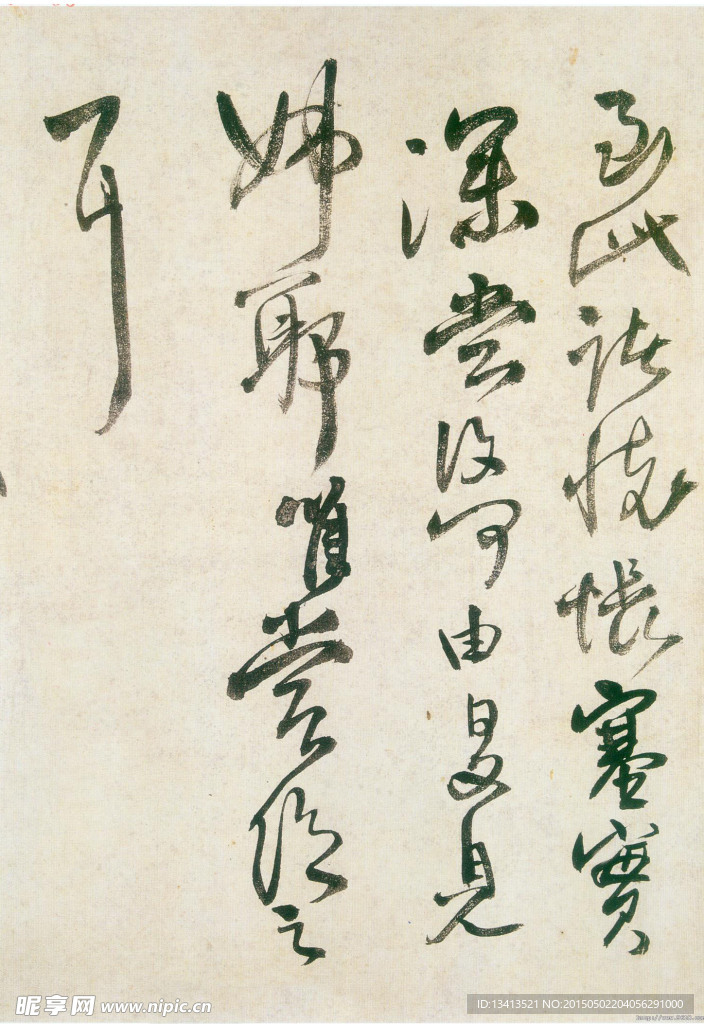 此諸懷悵塞實
深當復何由見
姊耶唯當
耳
昵享网 www.nipic.cn
ID:13413521 NO:20150502204056291000